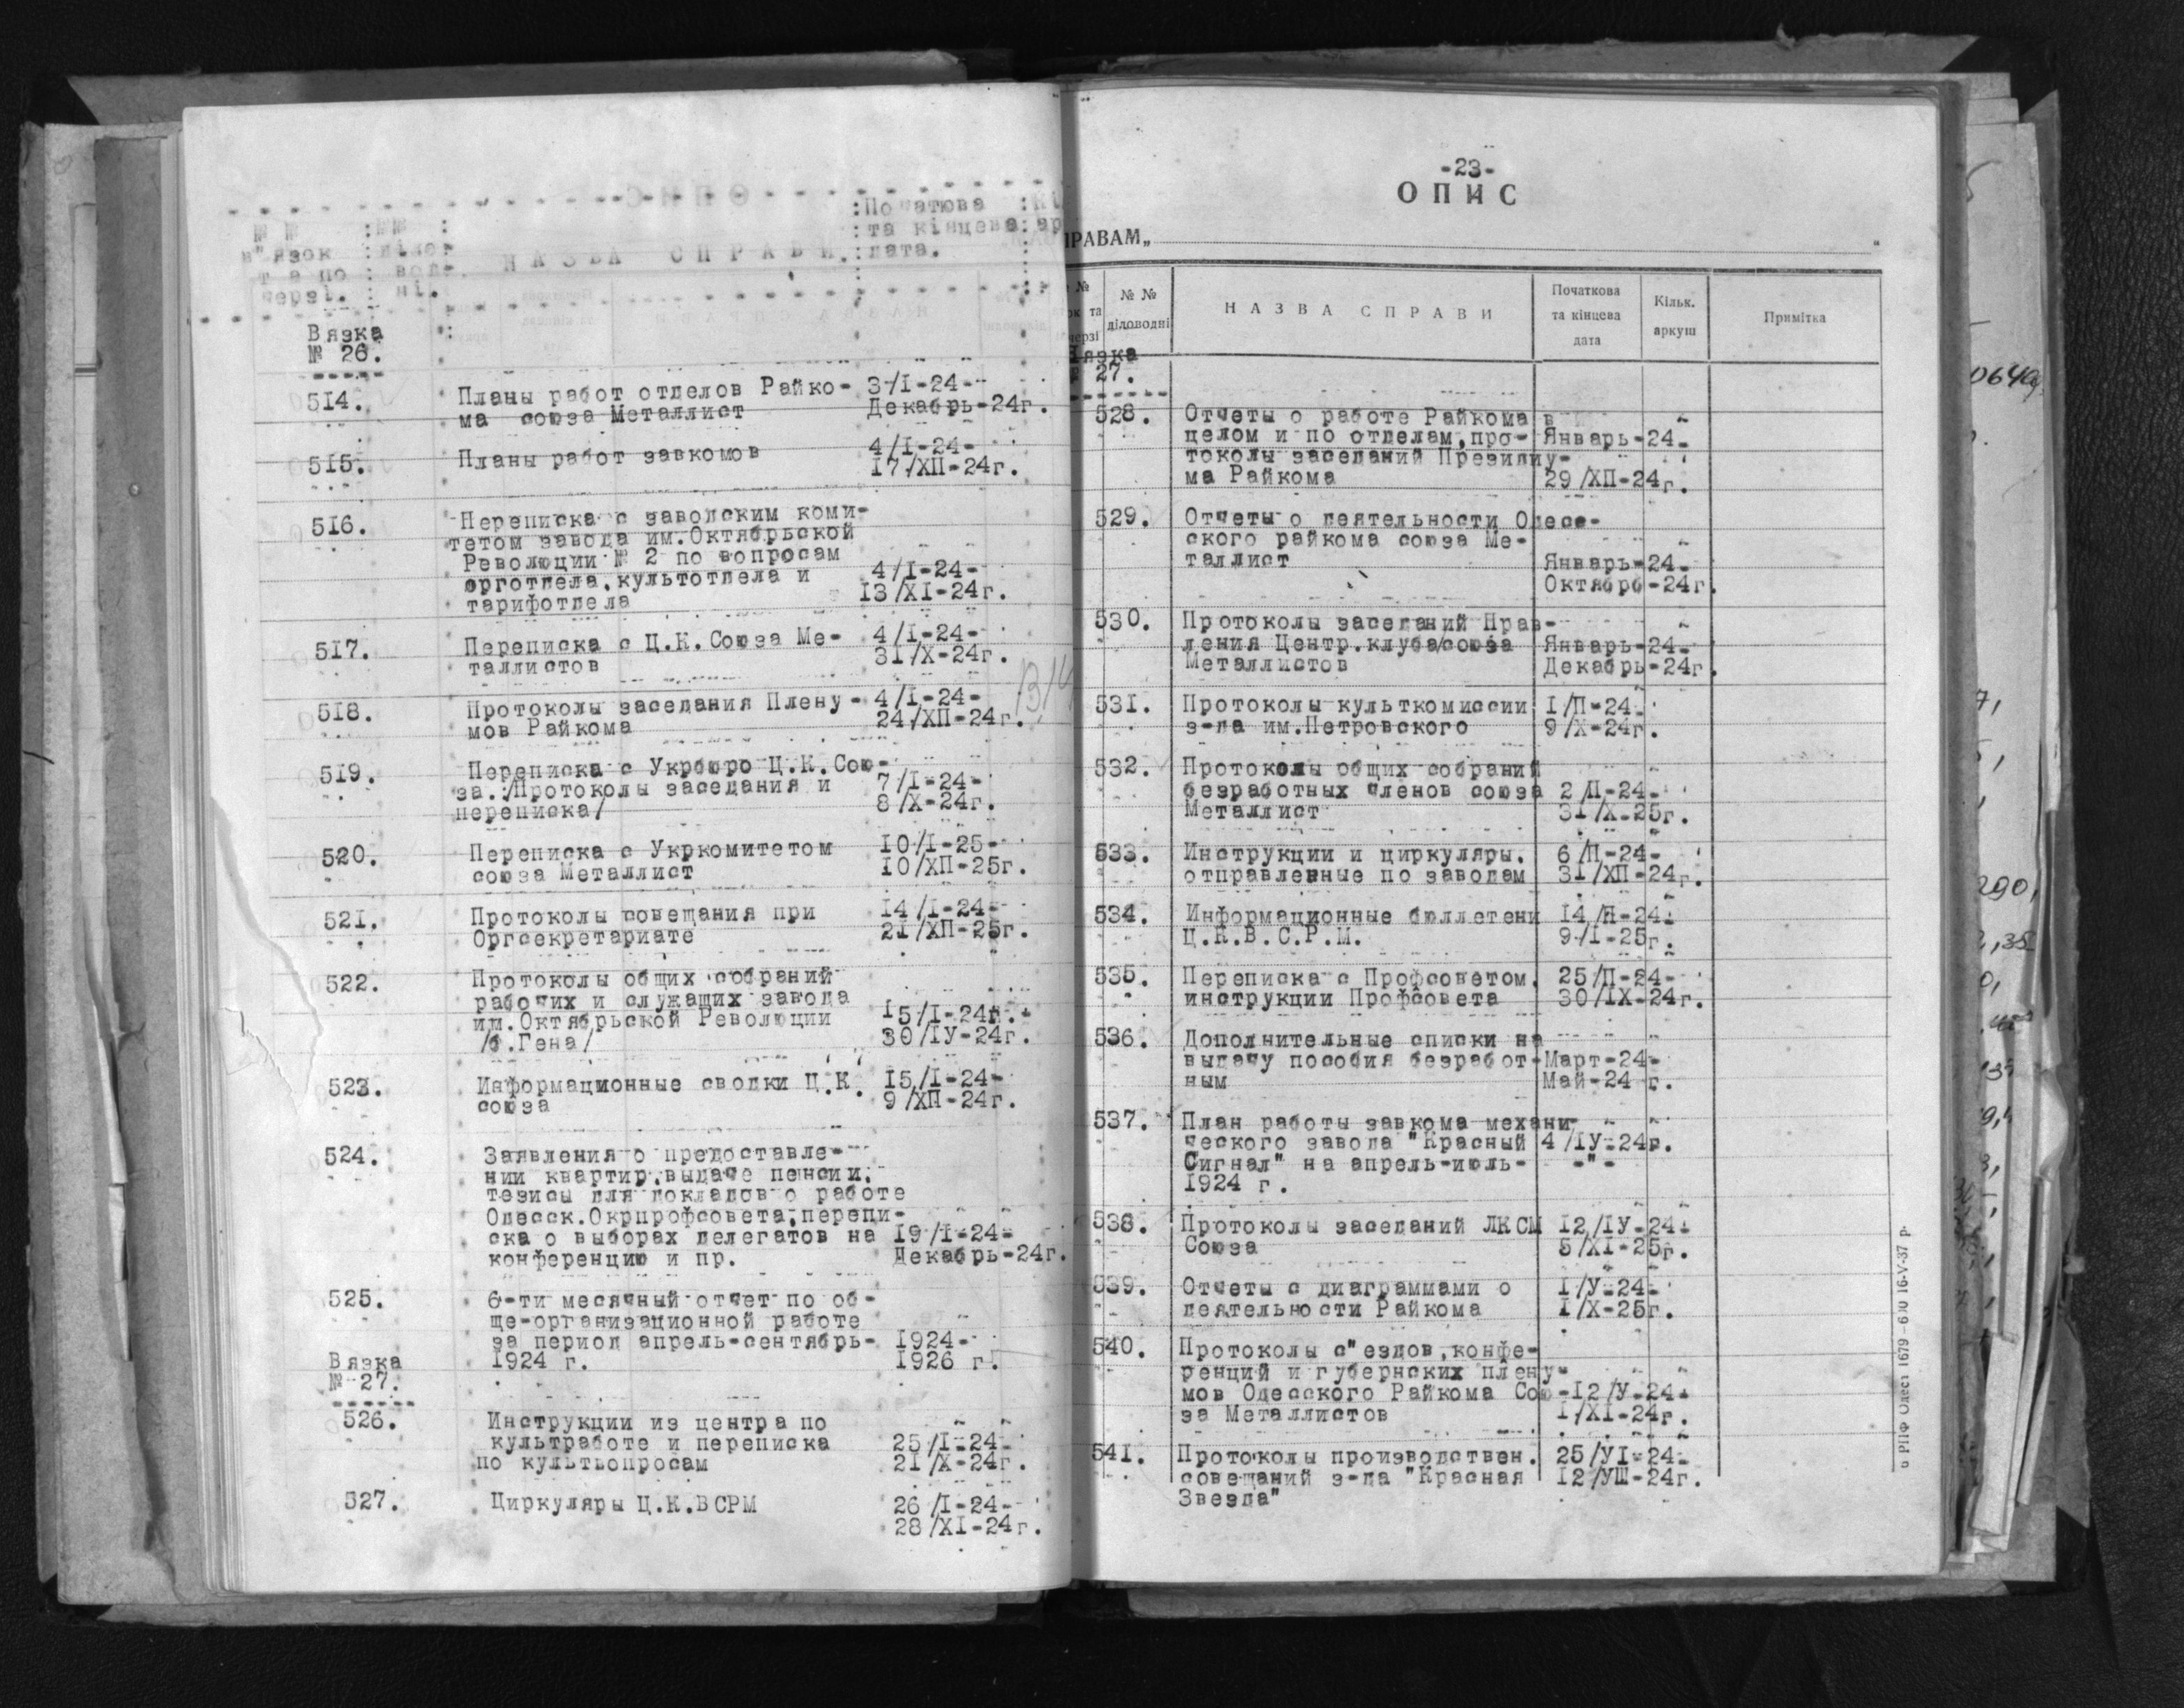 № №
в"язок
та по
черзі.
№№
діло-
вод-
ні.
НАЗВА СПРАВИ.
Початкова
та кінцева
дата.
Вязка
№ 26.
514. Планы работ отделов Райко- 3/I-24-
ма союза Металлист Декабрь-24г.
515. Планы работ завкомов 4/I-24-
17/XП-24г.
516. Переписка с заводским коми-
тетом завода им.Октябрьской
Революции № 2 по вопросам
орготдела,культотдела и 4/I-24-
тарифотдела 13/XI-24г.
517. Переписка с Ц.К.Союза Ме- 4/I-24-
таллистов 31/X-24г.
518. Протоколы заседания Плену- 4/I-24-
мов Райкома 24/XП-24г.
519. Переписка с Укрбюро Ц.К.Сою-
за./Протоколы заседания и 7/I-24-
переписка/ 8/X-24г.
520. Переписка с Укркомитетом 10/I-25-
союза Металлист 10/XП-25г.
521. Протоколы совещания при 14/I-24-
Оргсекретариате 21/XП-25г.
522. Протоколы общих собраний
рабочих и служащих завода
им.Октябрьской Революции 15/I-24г.-
/б.Гена/ 30/IУ-24г.
523. Информационные сводки Ц.К. 15/I-24-
союза 9/XП-24г.
524. Заявления о предоставле-
нии квартир,выдаче пенсии,
тезисы для докладов о работе
Одесск.Окрпрофсовета,перепи-
ска о выборах делегатов на 19/I-24-
конференцию и пр. Декабрь-24г.
525. 6-ти месячный отчет по об-
ще-организационной работе
за период апрель-сентябрь- 1924-
1924 г. 1926 г.
Вязка
№ 27.
526. Инструкции из центра по
культработе и переписка 25/I-24-
по культвопросам 21/X-24г.
527. Циркуляры Ц.К.ВСРМ 26/I-24-
28/XI-24г.
-23-
ОПИС
РАВАМ„
№ №
діловодні
НАЗВА СПРАВИ
Початкова
та кінцева
дата
Кільк.
аркуш
Примітка
Вязка
27.
528. Отчеты о работе Райкома в
целом и по отделам,про- Январь-24-
токолы заседаний Президиу-
ма Райкома 29/XП-24г.
529. Отчеты о деятельности Одесс-
ского райкома союза Ме-
таллист Январь-24-
Октябрь-24г.
530. Протоколы заседаний Прав-
ления Центр.клуба/союза Январь-24-
Металлистов Декабрь-24г.
531. Протоколы культкомиссии 1/П-24-
з-да им.Петровского 9/X-24г.
532. Протоколы общих собраний
безработных членов союза 2/П-24-
Металлист 31/X-25г.
533. Инструкции и циркуляры, 6/П-24-
отправленные по заводам 31/XП-24г.
534. Информационные бюллетени 14/П-24-
Ц.К.В.С.Р.М. 9/I-25г.
535. Переписка с Профсоветом, 25/П-24-
инструкции Профсовета 30/IX-24г.
536. Дополнительные списки на
выдачу пособия безработ- Март-24-
ным Май-24 г.
537. План работы завкома механи-
ческого завода "Красный 4/IУ-24г.
Сигнал" на апрель-июль- -"-
1924 г.
538. Протоколы заседаний ЛКСМ 12/IУ-24-
Союза 5/XI-25г.
539. Отчеты с диаграммами о 1/У-24-
деятельности Райкома 1/X-25г.
540. Протоколы с"ездов,конфе-
ренций и губернских плену-
мов Одесского Райкома Сою- 12/У-24-
за Металлистов 1/XI-24г.
541. Протоколы производствен. 25/УI-24-
совещаний з-да "Красная 12/УШ-24г.
Звезда"
РПФ Одеса 1679–630 16-V-37 р.